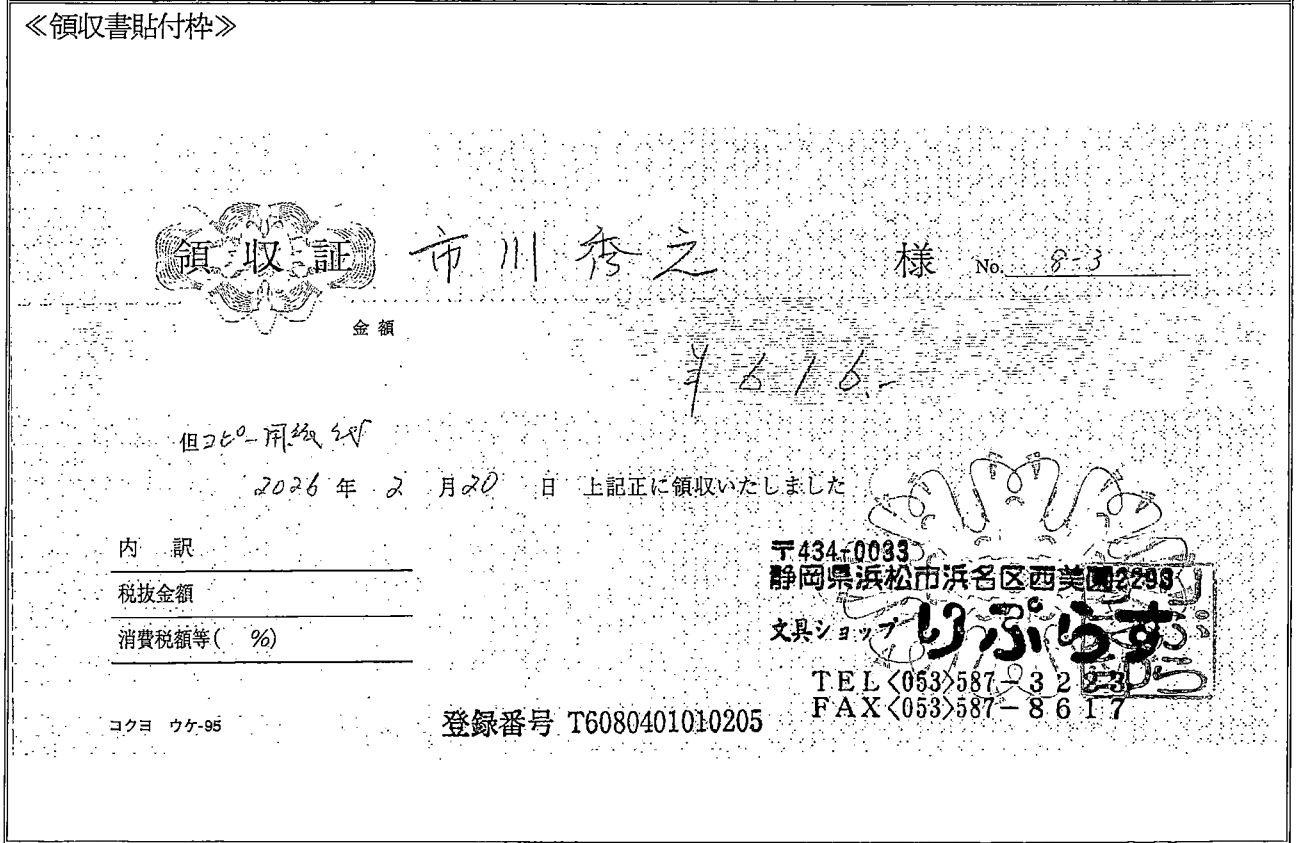 ≪領収書貼付枠≫
領収証 市川秀之 様 No. 8-3
金額
¥616.-
但コピー用紙代
2026年 2月20日 上記正に領収いたしました
内訳
税抜金額
消費税額等( %)
〒434-0033
静岡県浜松市浜名区西美薗2293
文具ショップ りぷらす
TEL<053>587-3223
FAX<053>587-8617
コクヨ ウケ-95
登録番号 T6080401010205